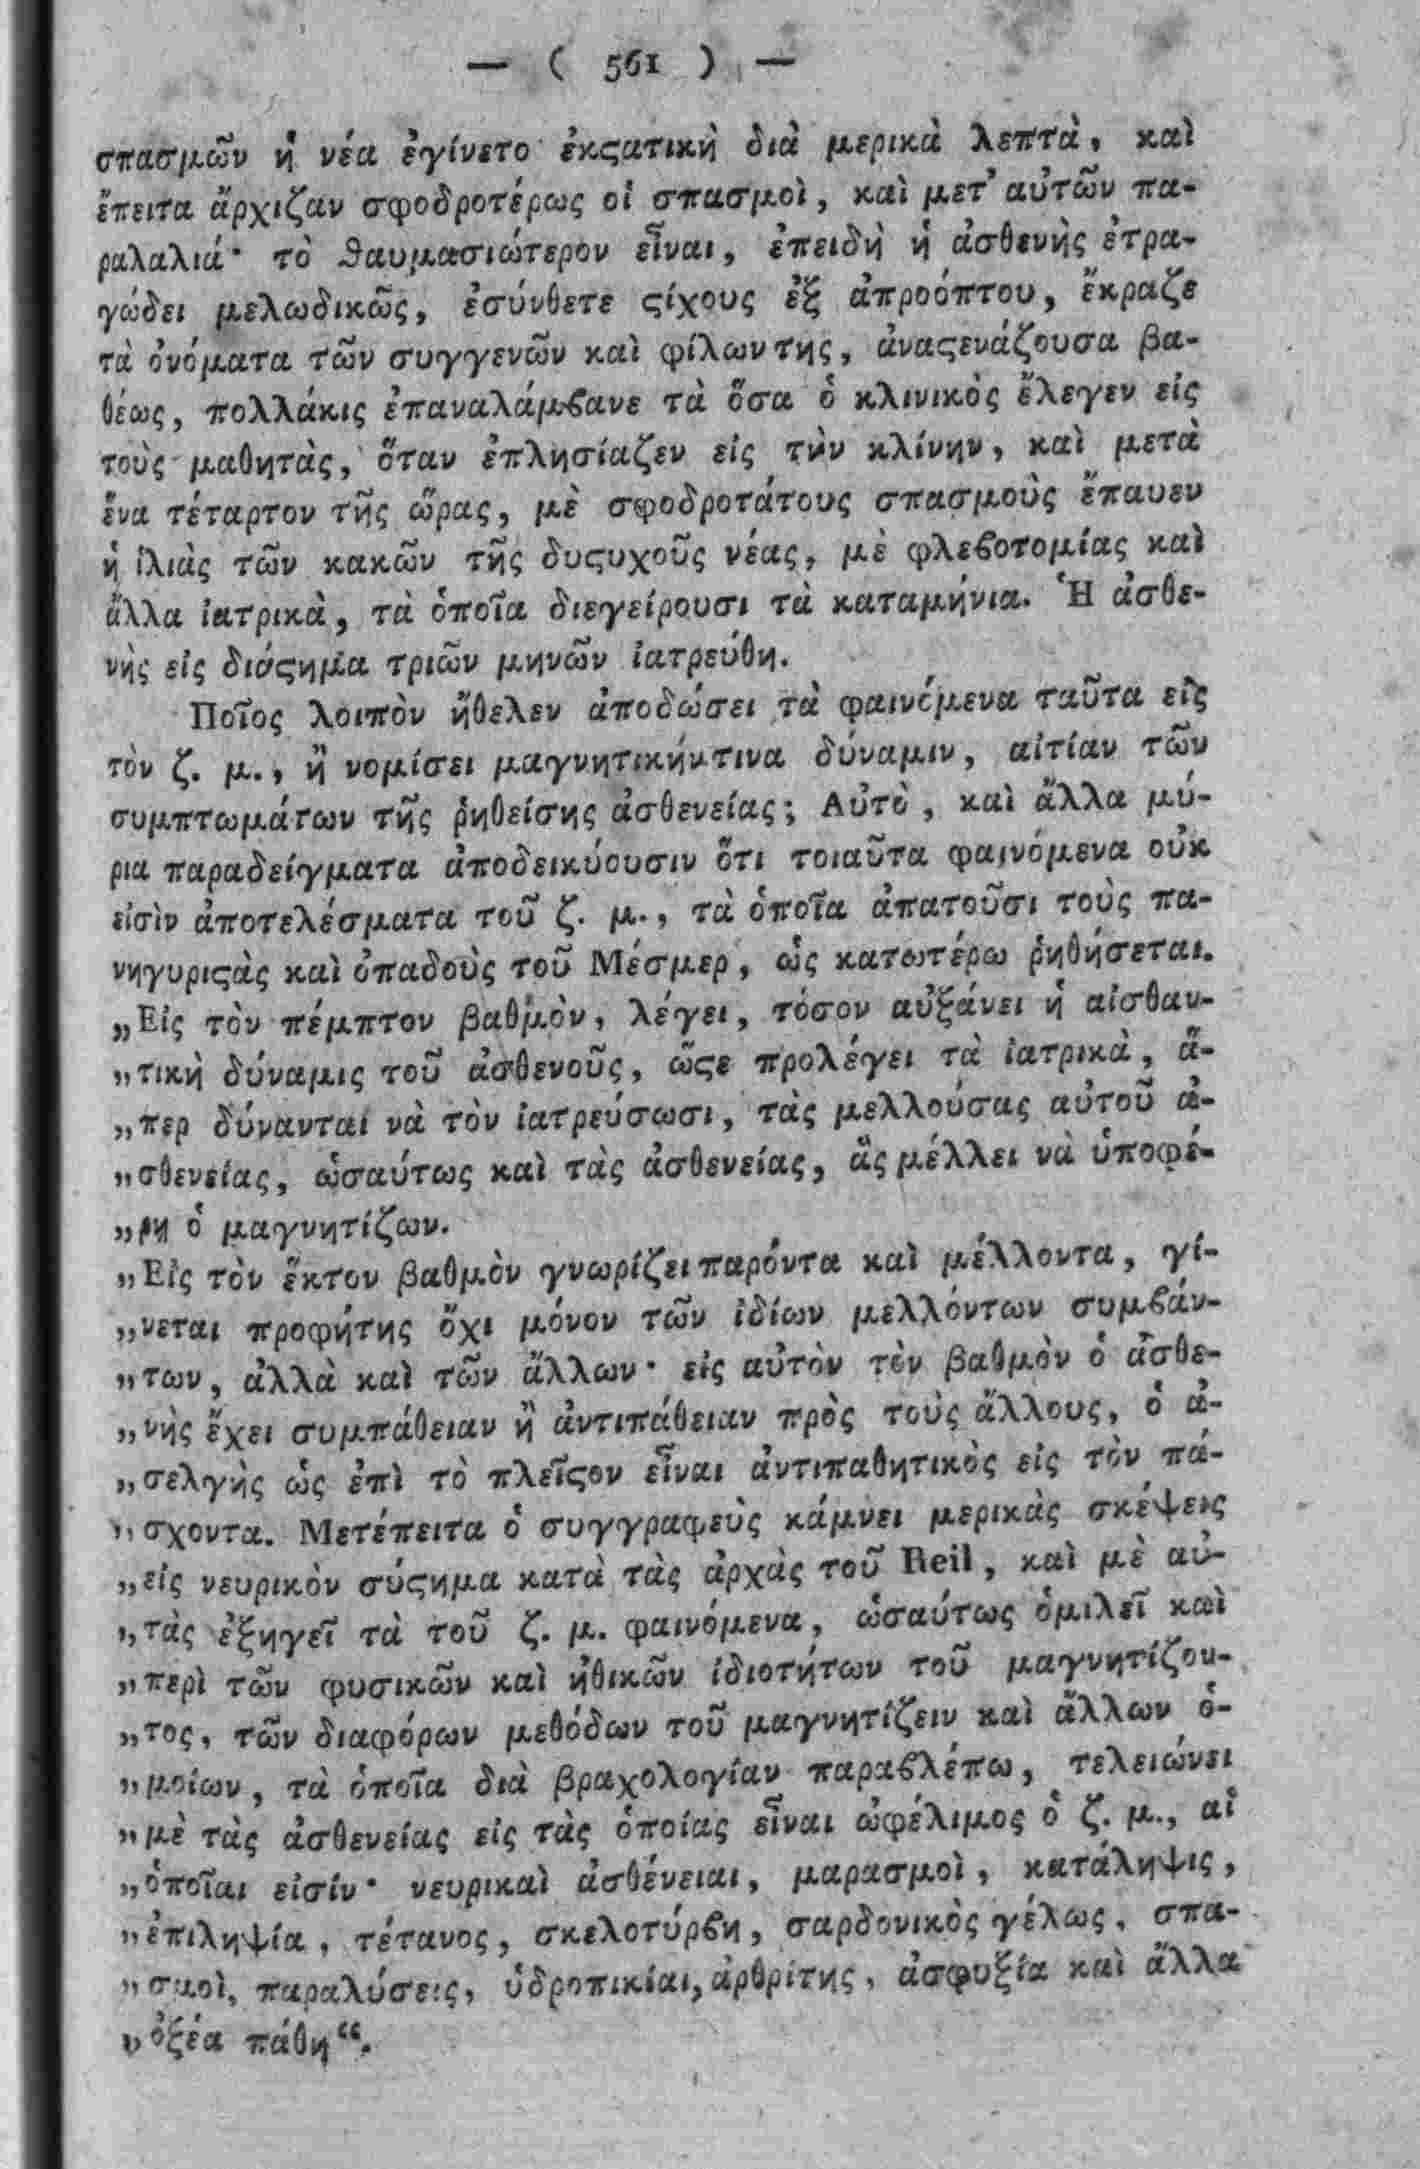 — ( 561 ) —
σπασμῶν ἡ νέα ἐγίνετο ἐκϛατικὴ διὰ μερικὰ λεπτὰ, καὶ
ἔπειτα ἄρχιζαν σφοδροτέρως οἱ σπασμοὶ, καὶ μετ' αὐτῶν πα-
ραλαλιά· τὸ ϑαυμασιώτερον εἶναι, ἐπειδὴ ἡ ἀσθενὴς ἐτρα-
γώδει μελωδικῶς, ἐσύνθετε ϛίχους ἐξ ἀπροόπτου, ἔκραζε
τὰ ὀνόματα τῶν συγγενῶν καὶ φίλων της, ἀναϛενάζουσα βα-
θέως, πολλάκις ἐπαναλάμϐανε τὰ ὅσα ὁ κλινικὸς ἔλεγεν εἰς
τοὺς μαθητὰς, ὅταν ἐπλησίαζεν εἰς τὴν κλίνην, καὶ μετὰ
ἕνα τέταρτον τῆς ὥρας, μὲ σφοδροτάτους σπασμοὺς ἔπαυεν
ἡ ἰλιὰς τῶν κακῶν τῆς δυϛυχοῦς νέας, μὲ φλεϐοτομίας καὶ
ἄλλα ἰατρικὰ, τὰ ὁποῖα διεγείρουσι τὰ καταμήνια. Ἡ ἀσθε-
νὴς εἰς διάϛημα τριῶν μηνῶν ἰατρεύθη.
Ποῖος λοιπὸν ἤθελεν ἀποδώσει τὰ φαινόμενα ταῦτα εἰς
τὸν ζ. μ., ἢ νομίσει μαγνητικήντινα δύναμιν, αἰτίαν τῶν
συμπτωμάτων τῆς ῥηθείσης ἀσθενείας; Αὐτὸ, καὶ ἄλλα μύ-
ρια παραδείγματα ἀποδεικύουσιν ὅτι τοιαῦτα φαινόμενα οὐκ
εἰσὶν ἀποτελέσματα τοῦ ζ. μ., τὰ ὁποῖα ἀπατοῦσι τοὺς πα-
νηγυριϛὰς καὶ ὀπαδοὺς τοῦ Μέσμερ, ὡς κατωτέρω ῥηθήσεται.
„Εἰς τὸν πέμπτον βαθμὸν, λέγει, τόσον αὐξάνει ἡ αἰσθαν-
„τικὴ δύναμις τοῦ ἀσθενοῦς, ὥϛε προλέγει τὰ ἰατρικὰ, ἅ-
„περ δύνανται νὰ τὸν ἰατρεύσωσι, τὰς μελλούσας αὐτοῦ ἀ-
„σθενείας, ὡσαύτως καὶ τὰς ἀσθενείας, ἃς μέλλει νὰ ὑποφέ-
„ρῃ ὁ μαγνητίζων.
„Εἰς τὸν ἕκτον βαθμὸν γνωρίζει παρόντα καὶ μέλλοντα, γί-
„νεται προφήτης ὄχι μόνον τῶν ἰδίων μελλόντων συμϐάν-
„των, ἀλλὰ καὶ τῶν ἄλλων· εἰς αὐτὸν τὸν βαθμὸν ὁ ἀσθε-
„νὴς ἔχει συμπάθειαν ἢ ἀντιπάθειαν πρὸς τοὺς ἄλλους, ὁ ἀ-
„σελγὴς ὡς ἐπὶ τὸ πλεῖϛον εἶναι ἀντιπαθητικὸς εἰς τὸν πά-
„σχοντα. Μετέπειτα ὁ συγγραφεὺς κάμνει μερικὰς σκέψεις
„εἰς νευρικὸν σύϛημα κατὰ τὰς ἀρχὰς τοῦ Reil, καὶ μὲ αὐ-
„τὰς ἐξηγεῖ τὰ τοῦ ζ. μ. φαινόμενα, ὡσαύτως ὁμιλεῖ καὶ
„περὶ τῶν φυσικῶν καὶ ἠθικῶν ἰδιοτήτων τοῦ μαγνητίζον-
„τος, τῶν διαφόρων μεθόδων τοῦ μαγνητίζειν καὶ ἄλλων ὁ-
„μοίων, τὰ ὁποῖα διὰ βραχολογίαν παραϐλέπω, τελειώνει
„μὲ τὰς ἀσθενείας εἰς τὰς ὁποίας εἶναι ὠφέλιμος ὁ ζ. μ., αἱ
„ὁποῖαι εἰσίν· νευρικαὶ ἀσθένειαι, μαρασμοὶ, κατάληψις,
„ἐπιληψία, τέτανος, σκελοτύρϐη, σαρδονικὸς γέλως, σπα-
„σμοὶ, παραλύσεις, ὑδροπικίαι, ἀρθρίτης, ἀσφυξία καὶ ἄλλα
„ὀξέα πάθη“.